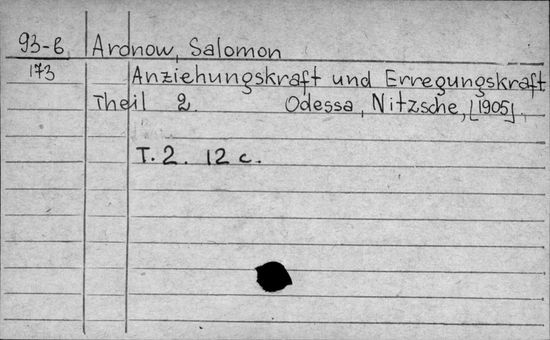 93-6 Aronow, Salomon
173 Anziehungskraft und Erregungskraft
Theil 2. Odessa, Nitzsche, [1905].
T. 2. 12 c.